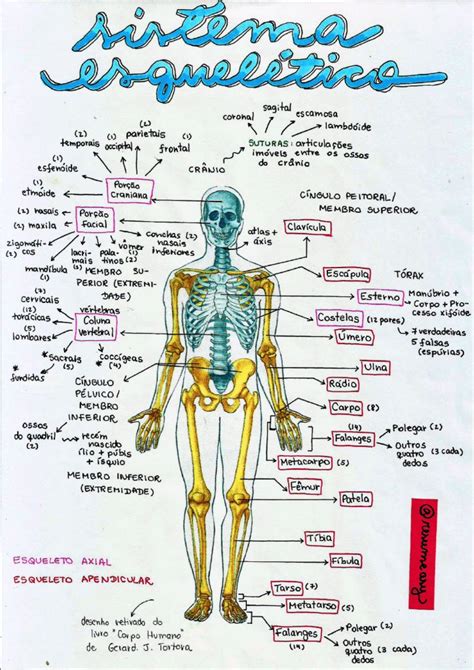 sistema
esquelético
sagital
coronal
escamosa
lambdóide
SUTURAS: articulações
imóveis entre os ossos
do crânio
CRÂNIO
(2)
parietais
(2)
temporais
(1)
occipital
(1)
frontal
(1)
esfenóide
(1)
etmóide
Porção
craniana
(2) nasais
(2) maxila
Porção
facial
zigomáti-
(2) cos
mandíbula
(1)
lacri-
mais
(2)
pala-
tinos (2)
vômer
(1)
conchas (2)
nasais
inferiores
atlas +
áxis
CÍNGULO PEITORAL/
MEMBRO SUPERIOR
Clavícula
Escápula
TÓRAX
Esterno
Manúbrio +
Corpo + Pro-
cesso xifóide
Costelas
(12 pares)
7 verdadeiras
5 falsas
(espúrias)
MEMBRO SU-
PERIOR (EXTREMI-
DADE)
(7)
cervicais
(12)
torácicas
(5)
lombares
vértebras
Coluna
vertebral
*sacrais
(5)
coccígeas
*(4)
*fundidas
Úmero
Ulna
Rádio
Carpo (8)
CÍNGULO
PÉLVICO/
MEMBRO
INFERIOR
ossos
do quadril
(2)
recém
nascido
ílio + púbis
+ ísquio
(14)
Falanges
Polegar (2)
Outros (3 cada)
quatro
dedos
Metacarpo (5)
MEMBRO INFERIOR
(EXTREMIDADE)
Fêmur
Patela
@resumeary
Tíbia
Fíbula
ESQUELETO AXIAL
ESQUELETO APENDICULAR
Tarso (7)
Metatarso (5)
Falanges
(14)
Polegar (2)
Outros (3 cada)
quatro
dedos
desenho retirado do
livro "Corpo Humano"
de Gerard. J. Tortora